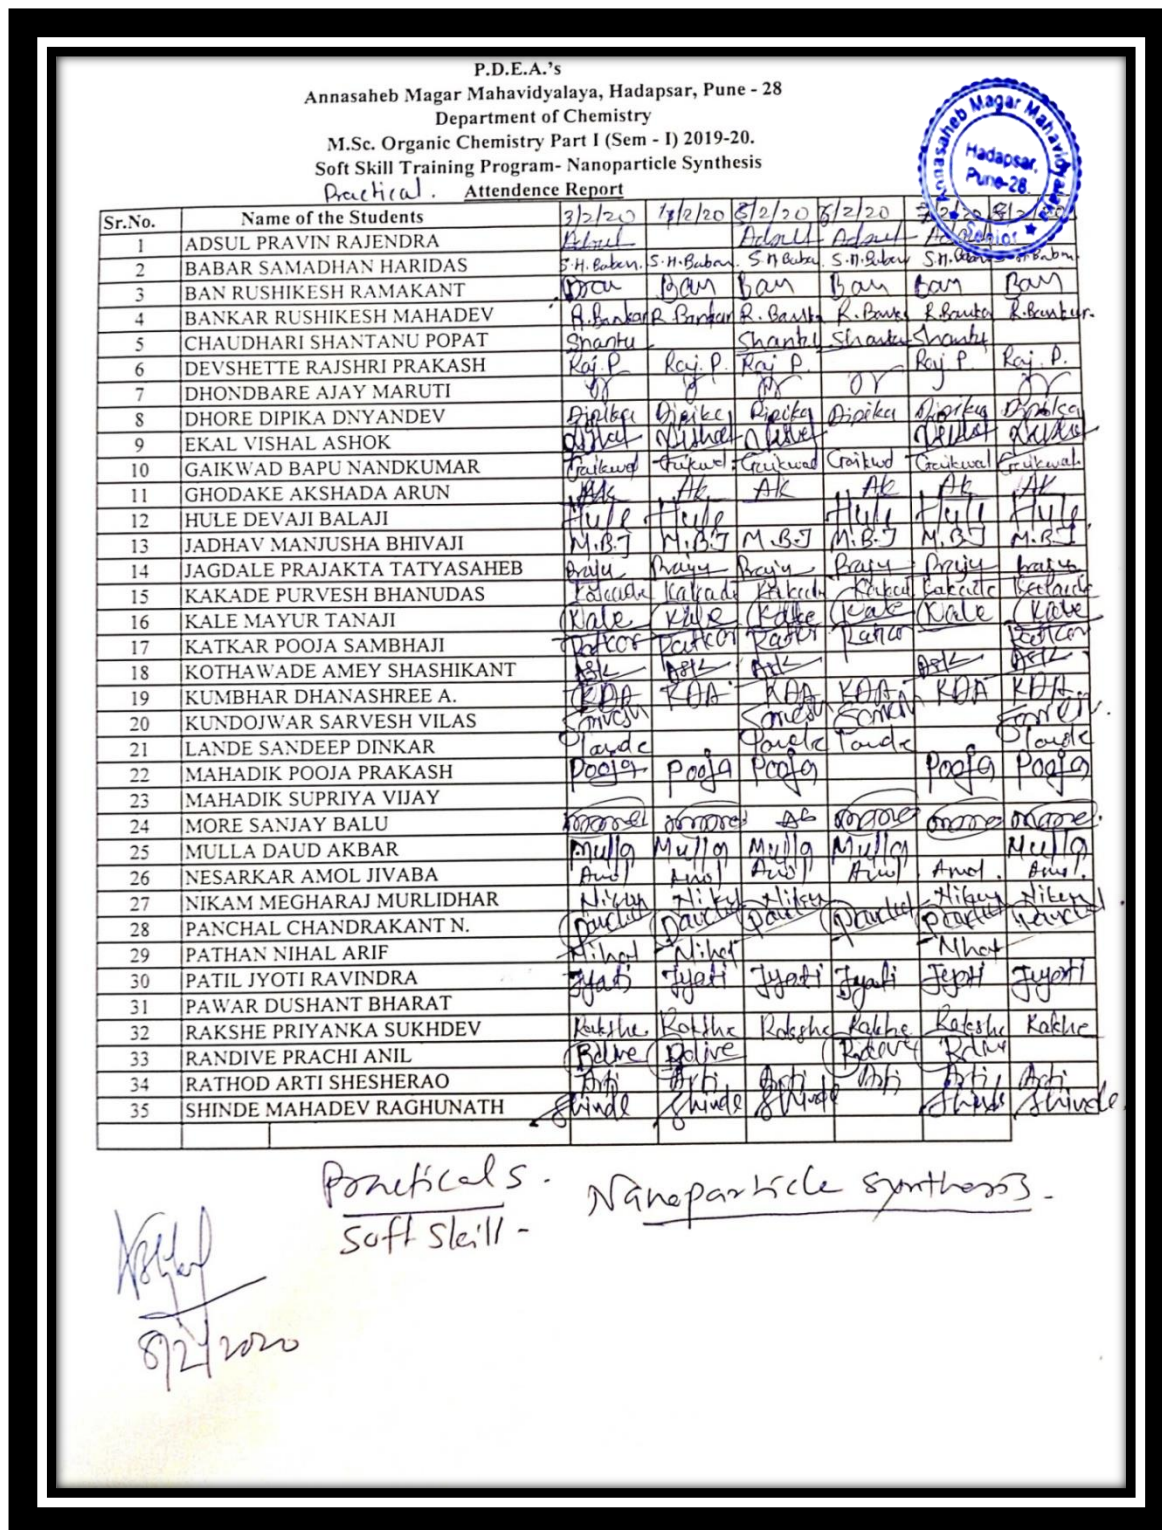 P.D.E.A.'s
Annasaheb Magar Mahavidyalaya, Hadapsar, Pune - 28
Department of Chemistry
M.Sc. Organic Chemistry Part I (Sem - I) 2019-20.
Soft Skill Training Program- Nanoparticle Synthesis
Practical. Attendence Report
Annasaheb Magar Mahavidyalaya
Hadapsar,
Pune-28.
Senior
Sr.No. Name of the Students 3/2/20 /2/20 /2/20 /2/20 /2/20
1 ADSUL PRAVIN RAJENDRA Adsul Adsul Adsul
2 BABAR SAMADHAN HARIDAS S.H.Babar. S.H.Babar. S.H.Babar S.H.Babar
3 BAN RUSHIKESH RAMAKANT Ban Ban Ban Ban Ban Ban
4 BANKAR RUSHIKESH MAHADEV R.Bankar R Bankar R. Bankar R. Bankar R.Bankar R.Bankar.
5 CHAUDHARI SHANTANU POPAT Shantu Shantu Shantu Shantu
6 DEVSHETTE RAJSHRI PRAKASH Raj.P Raj.P. Raj P. Raj P. Raj. P.
7 DHONDBARE AJAY MARUTI
8 DHORE DIPIKA DNYANDEV Dipika Dipika Dipika Dipika Dipika Dipika
9 EKAL VISHAL ASHOK Vishal Vishal Vishal
10 GAIKWAD BAPU NANDKUMAR Gaikwad Gaikwad Gaikwad Gaikwad Gaikwad
11 GHODAKE AKSHADA ARUN Ak Ak AK Ak Ak AK
12 HULE DEVAJI BALAJI Hule Hule Hule Hule Hule
13 JADHAV MANJUSHA BHIVAJI M.B.J M.B.J M.B.J M.B.J M.B.J M.B.J
14 JAGDALE PRAJAKTA TATYASAHEB Praju Praju Praju Praju Praju Praju
15 KAKADE PURVESH BHANUDAS Kakade Kakade Kakade Kakade Kakade
16 KALE MAYUR TANAJI Kale Kale Kale Kale Kale Kale
17 KATKAR POOJA SAMBHAJI Katkar Katkar Katkar Katkar Katkar
18 KOTHAWADE AMEY SHASHIKANT ASK ASK ASK ASK ASK
19 KUMBHAR DHANASHREE A. KDA KDA KDA KDA KDA KDA
20 KUNDOJWAR SARVESH VILAS Sarvesh Sarvesh Sarvesh
21 LANDE SANDEEP DINKAR Lande Lande Lande Lande
22 MAHADIK POOJA PRAKASH Pooja Pooja Pooja Pooja Pooja
23 MAHADIK SUPRIYA VIJAY
24 MORE SANJAY BALU
25 MULLA DAUD AKBAR Mulla Mulla Mulla Mulla Mulla
26 NESARKAR AMOL JIVABA Amol Amol Amol Amol Amol. Amol.
27 NIKAM MEGHARAJ MURLIDHAR Nikam Nikam Nikam Nikam
28 PANCHAL CHANDRAKANT N. Panchal Panchal Panchal Panchal Panchal Panchal
29 PATHAN NIHAL ARIF Nihal Nihal Nihal
30 PATIL JYOTI RAVINDRA Jyoti Jyoti Jyoti Jyoti Jyoti Jyoti
31 PAWAR DUSHANT BHARAT
32 RAKSHE PRIYANKA SUKHDEV Rakshe Rakshe Rakshe Rakshe Rakshe Rakshe
33 RANDIVE PRACHI ANIL
34 RATHOD ARTI SHESHERAO Arti Arti Arti Arti Arti Arti
35 SHINDE MAHADEV RAGHUNATH Shinde Shinde Shinde Shinde Shinde
Practicals. Nanoparticle synthesis.
Soft Skill -
8/2/2020